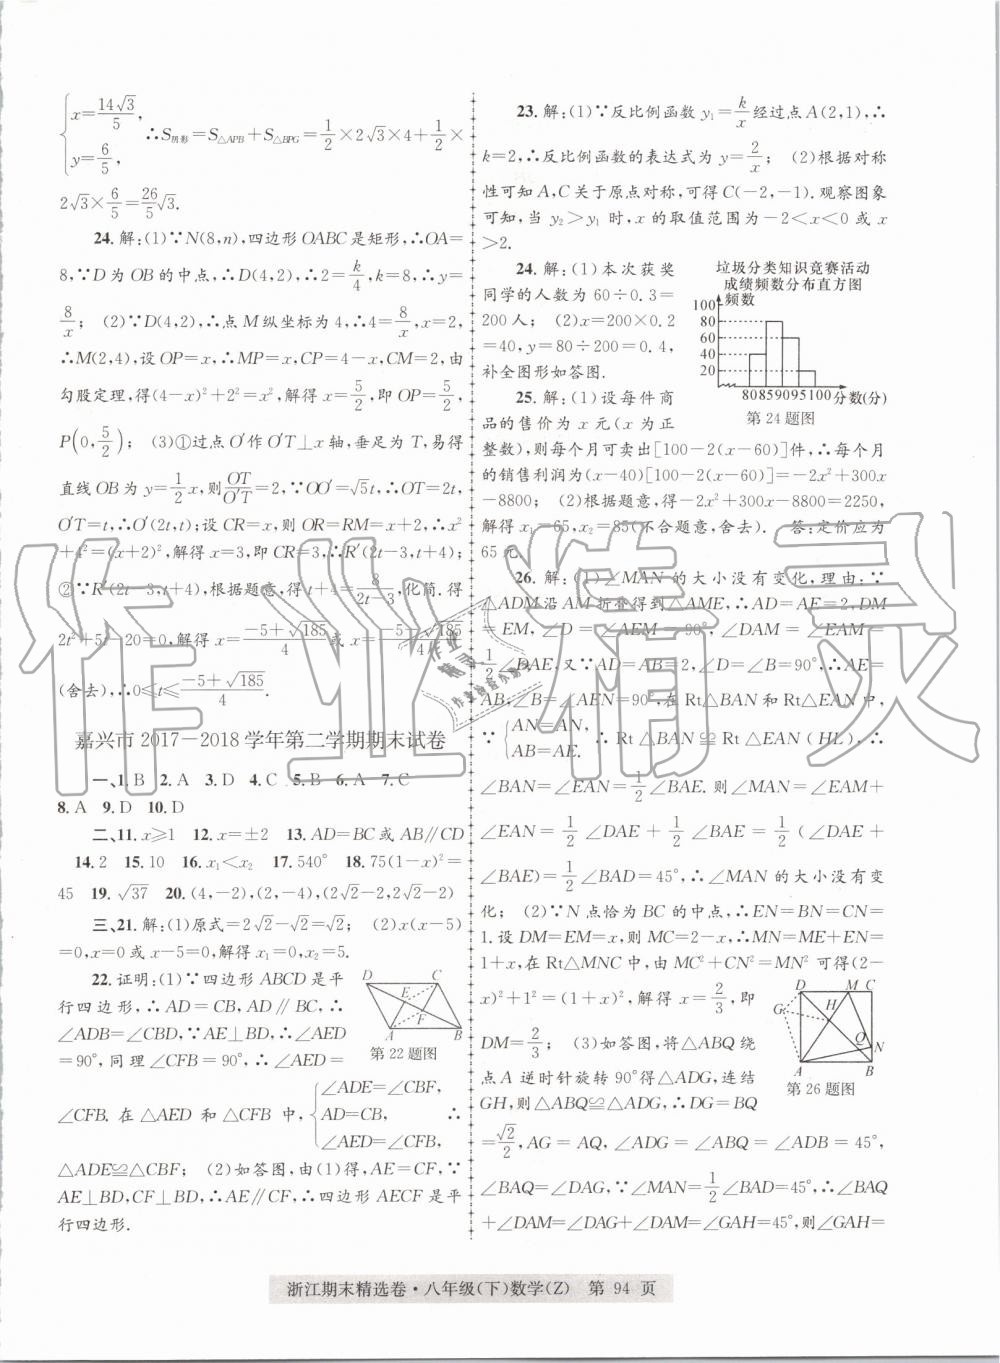 {x=14√3/5,
y=6/5, ∴S阴影=S△APB+S△BPG=1/2×2√3×4+1/2×
2√3×6/5=26/5√3.
24.解:(1)∵N(8,n),四边形OABC是矩形,∴OA=
8,∵D为OB的中点,∴D(4,2),∴2=k/4,k=8,∴y=
8/x; (2)∵D(4,2),∴点M纵坐标为4,∴4=8/x,x=2,
∴M(2,4),设OP=x,∴MP=x,CP=4-x,CM=2,由
勾股定理,得(4-x)²+2²=x²,解得x=5/2,即OP=5/2,
P(0,5/2); (3)①过点O′作O′T⊥x轴,垂足为T,易得
直线OB为y=1/2x,则OT/O′T=2,∵OO′=√5t,∴OT=2t,
O′T=t,∴O′(2t,t);设CR=x,则OR=RM=x+2,∴x²
+4²=(x+2)²,解得x=3,即CR=3,∴R′(2t-3,t+4)
②∵R′(2t-3,t+4),根据题意,得t+4=8/(2t-3),化简,得
2t²+5t-20=0,解得x=(-5+√185)/4或x=(-5-√185)/4
(舍去),∴0≤t≤(-5+√185)/4.
嘉兴市2017-2018学年第二学期期末试卷
一、1.B 2.A 3.D 4.C 5.B 6.A 7.C
8.A 9.D 10.D
二、11.x≥1 12.x=±2 13.AD=BC或AB∥CD
14.2 15.10 16.x₁<x₂ 17.540° 18.75(1-x)²=
45 19.√37 20.(4,-2),(2,-4),(2√2-2,2√2-2)
三、21.解:(1)原式=2√2-√2=√2; (2)x(x-5)
=0,x=0或x-5=0,解得x₁=0,x₂=5.
22.证明:(1)∵四边形ABCD是平
行四边形,∴AD=CB,AD∥BC,∴
∠ADB=∠CBD,∵AE⊥BD,∴∠AED
=90°,同理∠CFB=90°,∴∠AED=
D C
E
F
A B
第22题图
∠CFB.在△AED和△CFB中,{∠ADE=∠CBF,
AD=CB,
∠AED=∠CFB, ∴
△ADE≌△CBF; (2)如答图,由(1)得,AE=CF,∵
AE⊥BD,CF⊥BD,∴AE∥CF,∴四边形AECF是平
行四边形.
23.解:(1)∵反比例函数y₁=k/x经过点A(2,1),∴
k=2,∴反比例函数的表达式为y=2/x; (2)根据对称
性可知A,C关于原点对称,可得C(-2,-1).观察图象
可知,当y₂>y₁时,x的取值范围为-2<x<0或x
>2.
24.解:(1)本次获奖
同学的人数为60÷0.3=
200人; (2)x=200×0.2
=40,y=80÷200=0.4,
补全图形如答图.
垃圾分类知识竞赛活动
成绩频数分布直方图
频数
100
80
60
40
20
80859095100分数(分)
第24题图
25.解:(1)设每件商
品的售价为x元(x为正
整数),则每个月可卖出[100-2(x-60)]件,∴每个月
的销售利润为(x-40)[100-2(x-60)]=-2x²+300x
-8800; (2)根据题意,得-2x²+300x-8800=2250,
解得x₁=65,x₂=85(不合题意,舍去). 答:定价应为
65元.
26.解:(1)∠MAN的大小没有变化,理由:∵
△ADM沿AM折叠得到△AME,∴AD=AE=2,DM
=EM,∠D=∠AEM=90°,∠DAM=∠EAM=
1/2∠DAE,又∵AD=AB=2,∠D=∠B=90°,∴AE=
AB,∠B=∠AEN=90°,在Rt△BAN和Rt△EAN中,
∵{AN=AN,
AB=AE. ∴Rt△BAN≌Rt△EAN(HL),∴
∠BAN=∠EAN=1/2∠BAE.则∠MAN=∠EAM+
∠EAN=1/2∠DAE+1/2∠BAE=1/2(∠DAE+
∠BAE)=1/2∠BAD=45°,∴∠MAN的大小没有变
化; (2)∵N点恰为BC的中点,∴EN=BN=CN=
1.设DM=EM=x,则MC=2-x,∴MN=ME+EN=
1+x,在Rt△MNC中,由MC²+CN²=MN²可得(2-
x)²+1²=(1+x)²,解得x=2/3,即
DM=2/3; (3)如答图,将△ABQ绕
点A逆时针旋转90°得△ADG,连结
GH,则△ABQ≌△ADG,∴DG=BQ
D M C
G H
Q N
A B
第26题图
=√2/2,AG=AQ,∠ADG=∠ABQ=∠ADB=45°,
∠BAQ=∠DAG,∵∠MAN=1/2∠BAD=45°,∴∠BAQ
+∠DAM=∠DAG+∠DAM=∠GAH=45°,则∠GAH=
浙江期末精选卷·八年级(下)数学(Z) 第 94 页
作业精灵